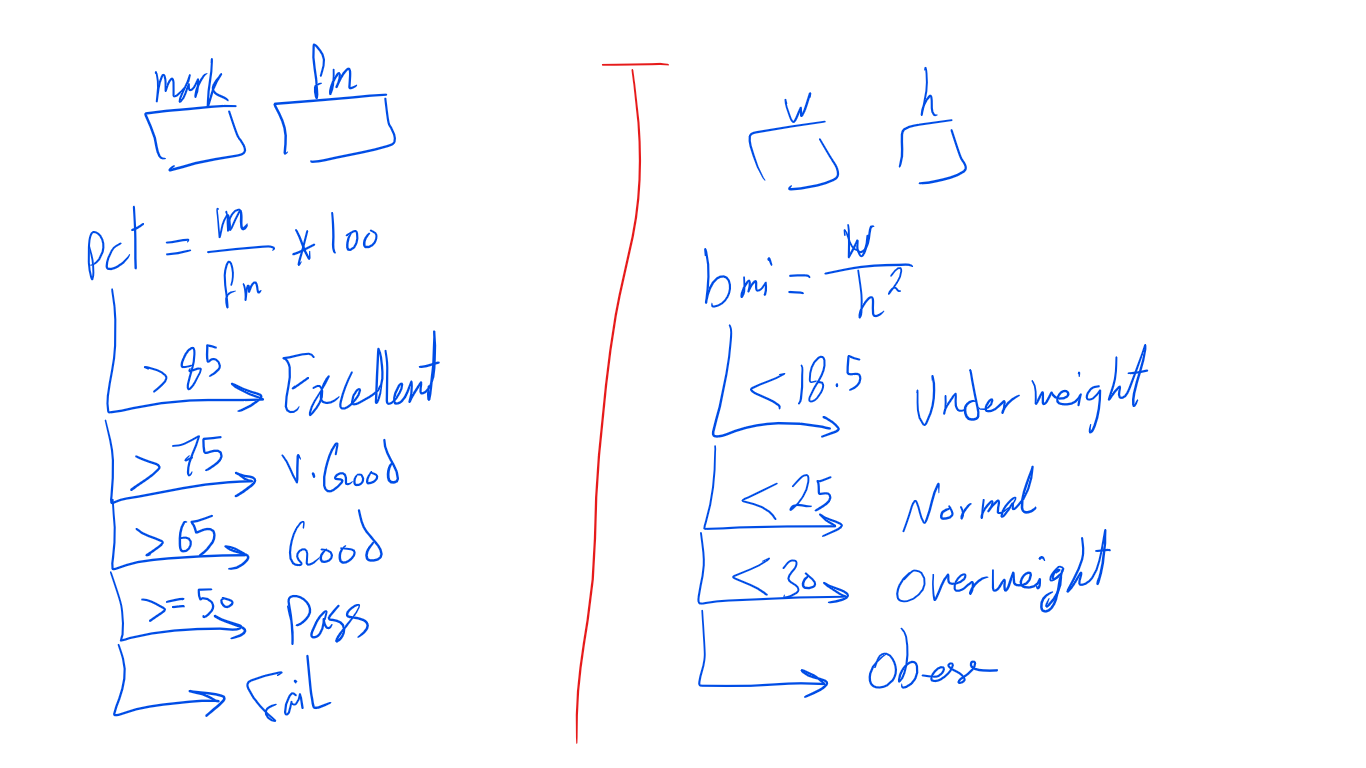 mark fm
pct = m / fm * 100
>85 Excellent
>75 V.Good
>65 Good
>=50 Pass
Fail
w h
bmi = w / h²
<18.5 Underweight
<25 Normal
<30 Overweight
Obese